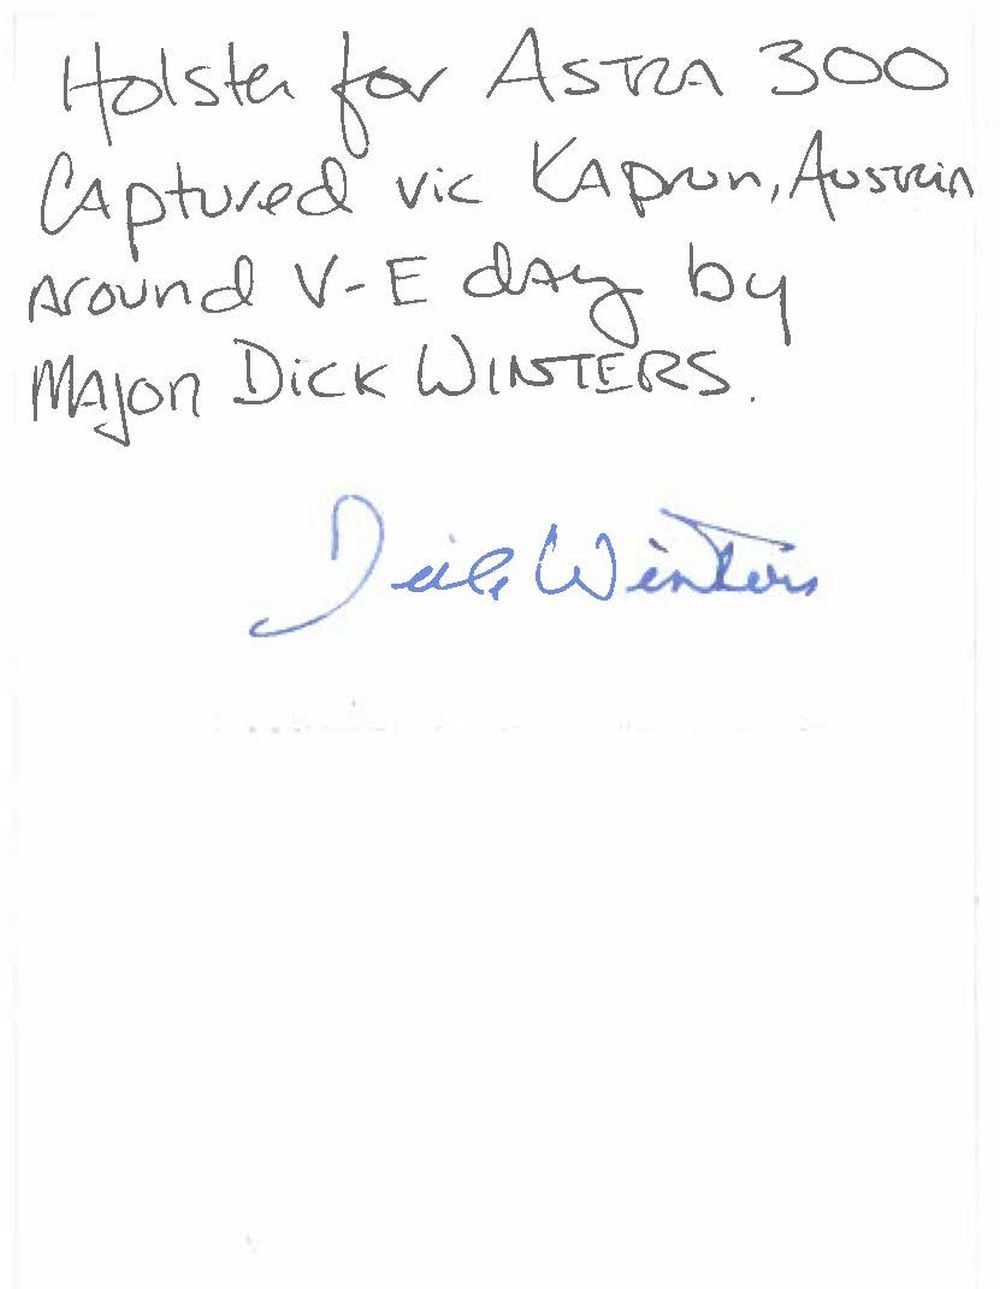 Holster for ASTRA 300
CAptured vic KAprun, Austria
Around V-E dAy by
MAjor DiCK WINSTERS.
Dick Winters